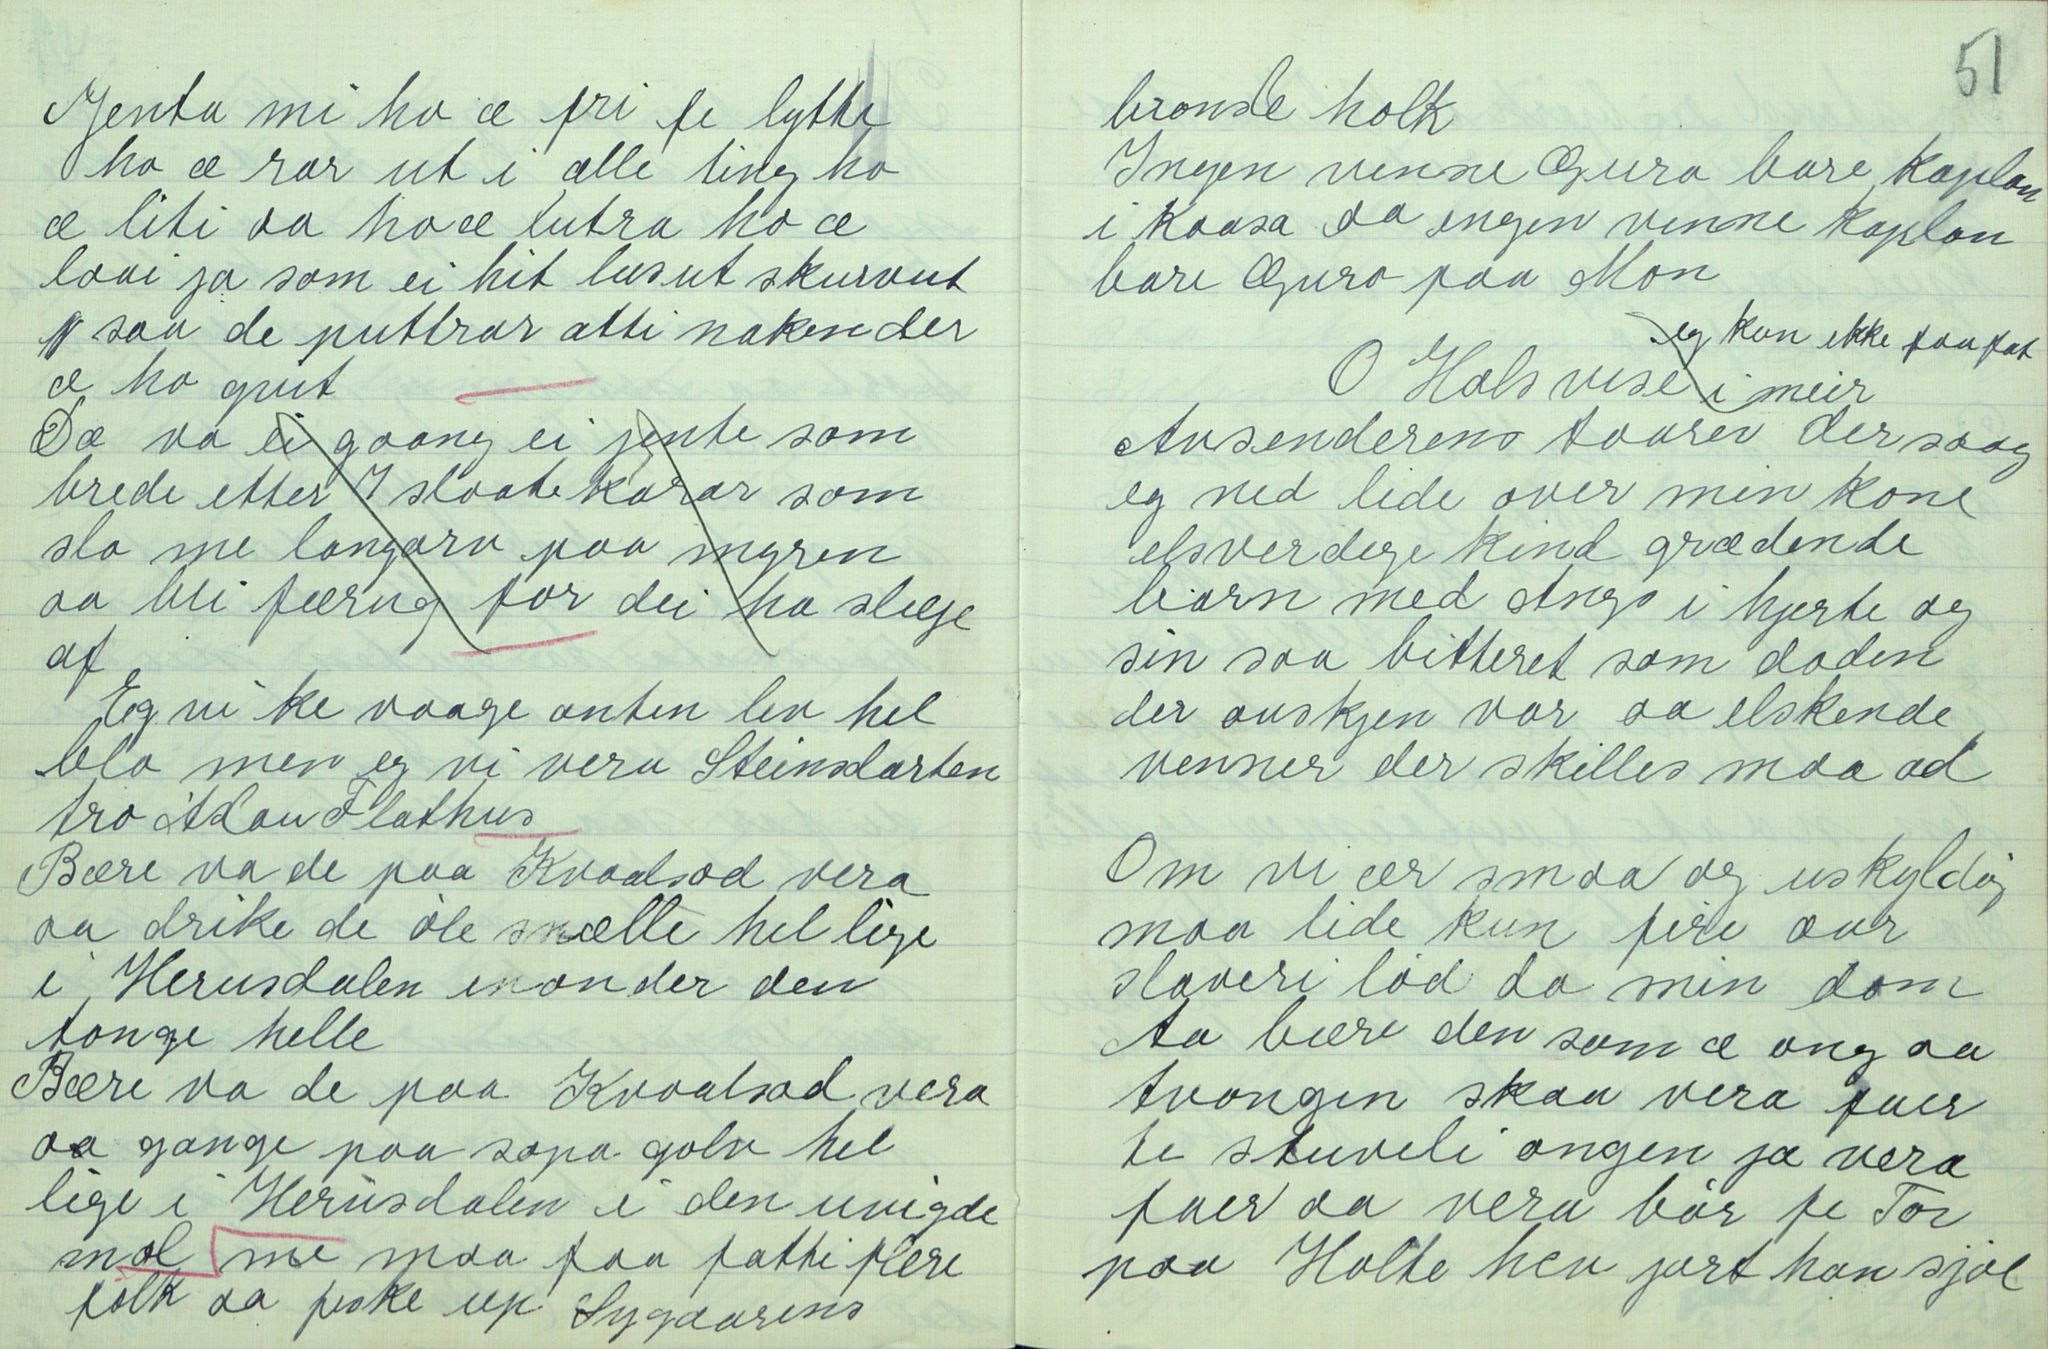 Jenta mi ho æ fri fe lytte
ho æ rar ut i alle ting ho
æ liti oa ho æ lutra ho æ
loai ja som ei hit lusut skurvut
saa de puttrar atti naken der
æ ho grut
Dæ va ei goang ei jente som
brede etter 7 sloatekarar som
slo me langorv paa myren
oa bli færug for dei ha slæge
af
Eg vi ke voage anten lev hel
blo men eg vi vera Steinsdarten
tro Flathus
Bære va de paa Kvoalsod vera
oa drike de öle snælle hel lige
i Herusdalen inonder den
tonge helle
Bære va de paa Kvoalsod vera
oa gange paa sopa golv hel
lige i Herusdalen i den uvigde
mol me maa faa fatti flere
folk oa fiske up Sygaarens
51
bronsle holk
Ingen venne Guro bare kaplan
i Kaasa oa ingen venne kaplan
bare Guro paa Mon
eg kan ikke faa fat
O Hals vise i meir
Avsenderens taarer der saag
eg ned lide over min kone
elsverdige kind grædende
barn med Angs i hjerte og
sin saa bitteret som doden
der avskjen var oa elskende
venner der skilles maa ad
Om vi ær smaa og uskyldig
maa lide kun fire aar
slaveri löd da min dom
Aa bære den som æ ong oa
tvongen skaa vera faer
te stuveli ongen ja vera
faer oa vera bör fe Tor
paa Holte hev jort han sjöl